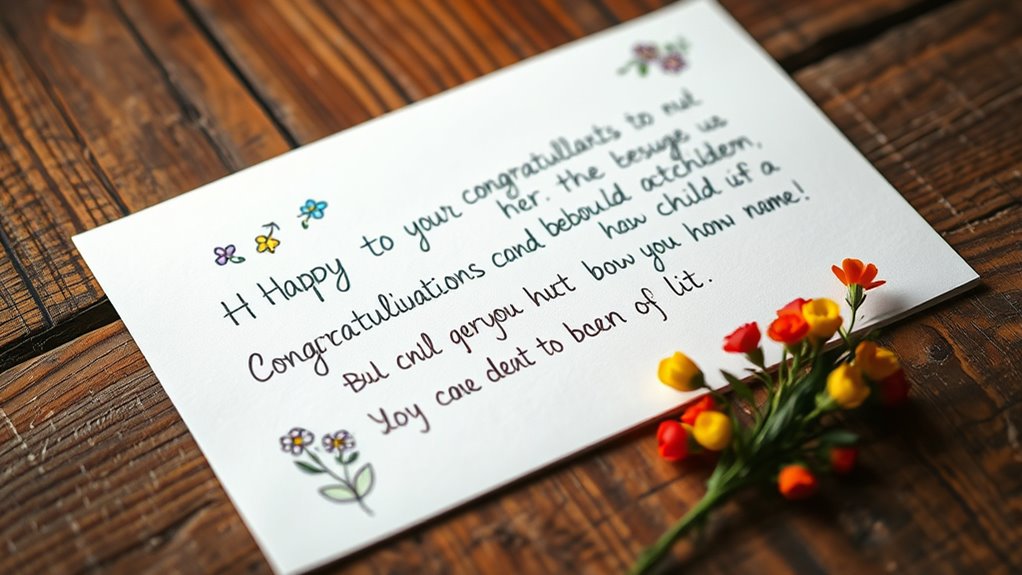 H Happy to your congratullants to nut
her. the besuge us
Congratuliuations cand bebould actchldern,
haw child uf a
Bul cnil geryou hurt bow you honr name!
Yoy cave deut to bcen of lit.